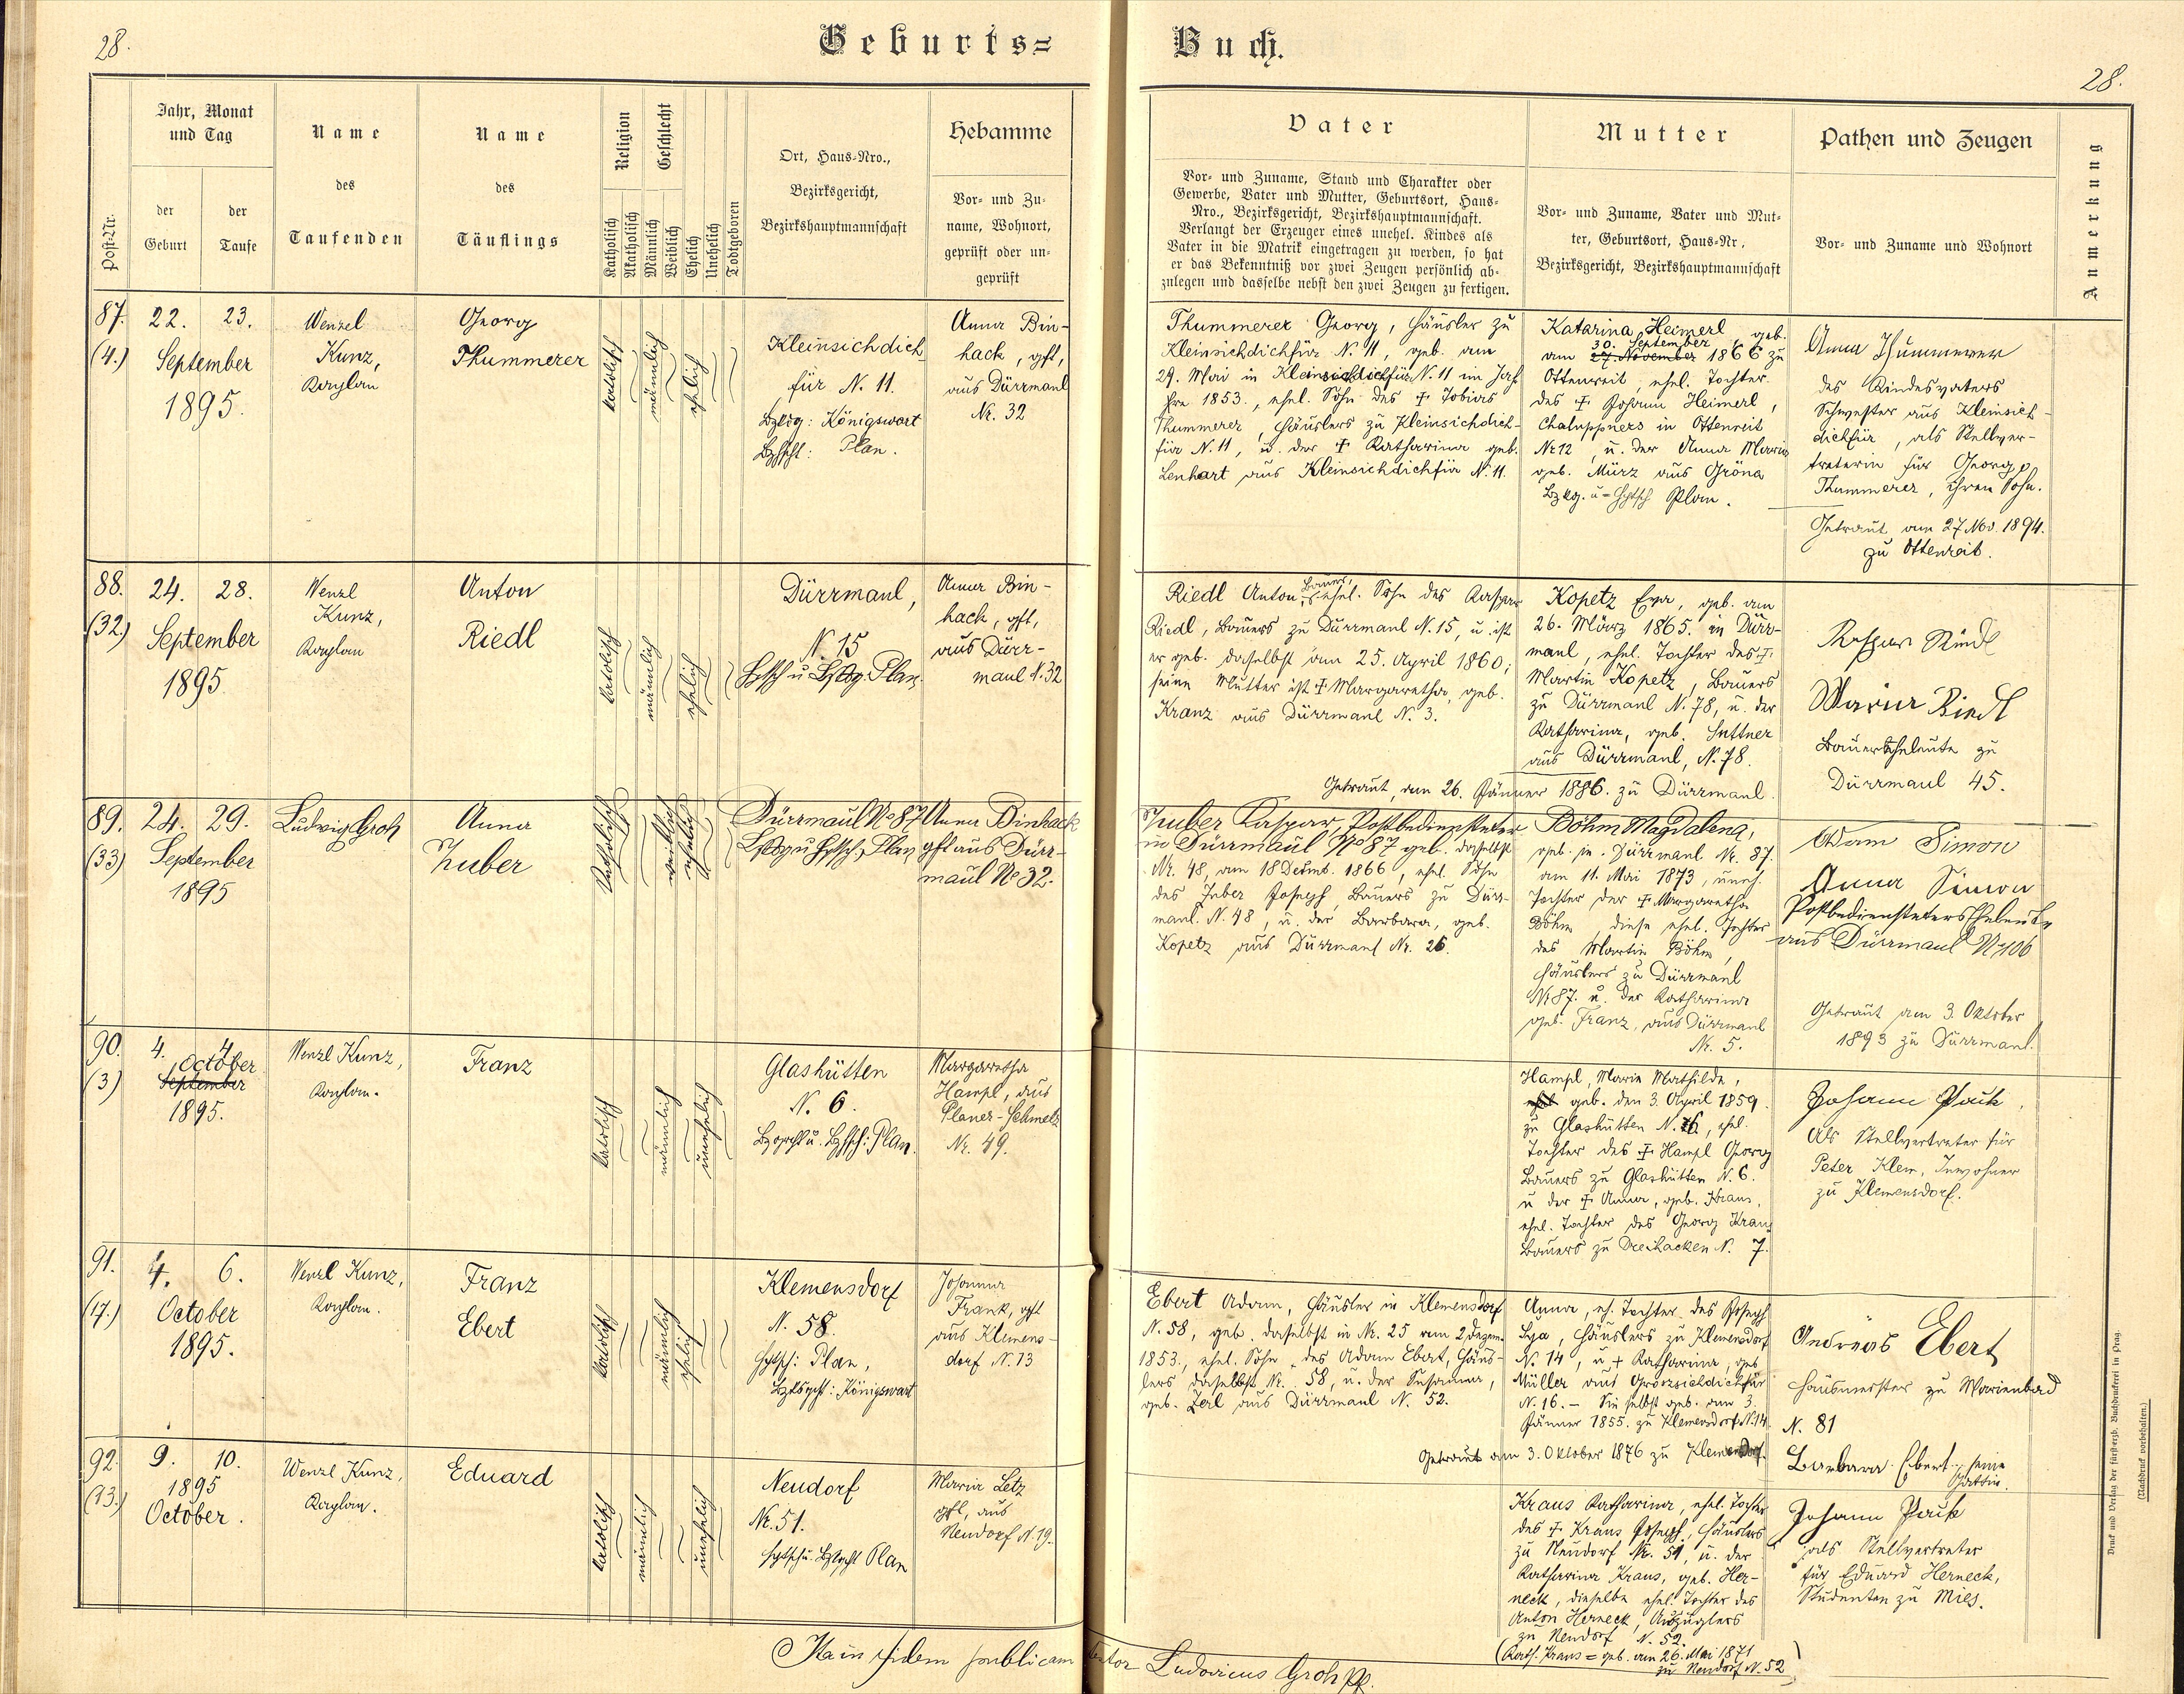 28.
Geburts=
Buch.
28.
Post-Nr.
Jahr, Monat
und Tag
der
Geburt
der
Taufe
Name
des
Taufenden
Name
des
Täuflings
Religion
Katholisch
Akatholisch
Geschlecht
Männlich
Weiblich
Ehelich
Unehelich
Todtgeboren
Ort, Haus-Nro.,
Bezirksgericht,
Bezirkshauptmannschaft
Hebamme
Vor- und Zu-
name, Wohnort,
geprüft oder un-
geprüft
Vater
Vor- und Zuname, Stand und Charakter oder
Gewerbe, Vater und Mutter, Geburtsort, Haus-
Nro., Bezirksgericht, Bezirkshauptmannschaft.
Verlangt der Erzeuger eines unehel. Kindes als
Vater in die Matrik eingetragen zu werden, so hat
er das Bekenntniß vor zwei Zeugen persönlich ab-
zulegen und dasselbe nebst den zwei Zeugen zu fertigen.
Mutter
Vor- und Zuname, Vater und Mut-
ter, Geburtsort, Haus-Nr.,
Bezirksgericht, Bezirkshauptmannschaft
Pathen und Zeugen
Vor- und Zuname und Wohnort
Anmerkung
87.
(4.)
22. 23.
September
1895.
Wenzel
Kunz,
Kaplan
Georg
Thummerer
katolisch
männlich
ehelich
Kleinsichdich
für N. 11.
Bzkg: Königswart
Bzhpt: Plan.
Anna Bin-
hack, gft,
aus Dürrmaul
Nr. 32
Thummerer Georg, Häusler zu
Kleinsichdichfür N. 11, geb. am
29. Mai in Kleinsichdichfür N. 11 im Jah
hre 1853., ehel. Sohn des † Tobias
Thummerer, Häuslers zu Kleinsichdich-
für N. 11, u. der † Katharina geb.
Lenhart aus Kleinsichdichfür N. 11.
Katarina Heimerl, geb.
30. September
am 27. November 1866 zu
Ottenreit, ehel. Tochter
des † Johann Heimerl,
Chaluppners in Ottenreit
Nr 12, u. der Anna Maria
geb. März aus Gröna
Bzkg. u= Hptsch Plan.
Anna Thummerer
des Kindesvaters
Schwester aus Kleinsich-
dichfür, als Stellver-
treterin für Georg
Thummerer, ihren Sohn.
Getraut am 27. Nov. 1894.
zu Ottenreit.
88.
(32)
24. 28.
September
1895.
Wenzl
Kunz,
Kaplan
Anton
Riedl
katolisch
männlich
ehelich
Dürrmaul,
N. 15
Hptsch u Bzkg. Plan.
Anna Bin-
hack, gft,
aus Dürr-
maul N. 32
Riedl Anton, Bauer, ehel. Sohn des Kaspar
Riedl, Bauers zu Dürrmaul N. 15, u. ist
er geb. daselbst am 25. April 1860;
seine Mutter ist † Margaretha, geb.
Kranz aus Dürrmaul N. 3.
Kopetz Eva, geb. am
26. März 1865. in Dürr-
maul, ehel. Tochter des †
Martin Kopetz, Bauers
zu Dürrmaul N. 78, u. der
Katharina, geb. Suttner
aus Dürrmaul, N. 78.
Getraut am 26. Jänner 1886. zu Dürrmaul.
Kaspar Riedl
Maria Riedl
Bauerseheleute zu
Dürrmaul 45.
89.
(33)
24. 29.
September
1895
Ludwig Groh
Anna
Zuber
Katholisch
weiblich
ehelich
Dürrmaul No 87
Bzkg u Hptsch. Plan
Anna Binhack
gft aus Dürr-
maul No 32.
Zuber Kaspar, Postbediensteter
in Dürrmaul No 87 geb. daselbst
Nr. 48, am 18 Dezmb. 1866, ehel. Sohn
des Zuber Joseph, Bauers zu Dürr-
maul. N. 48, u. der Barbara, geb.
Kopetz aus Dürrmaul Nr. 26.
Böhm Magdalena,
geb. in. Dürrmaul Nr. 87.
am 11. Mai 1873, uneh.
Tochter der † Margaretha
Böhm, diese ehel. Tochter
des Martin Böhm,
Häuslers zu Dürrmaul
Nr 87. u. der Katharina
geb. Franz, aus Dürrmaul
Nr. 5.
Adam Simon
Anna Simon
Postbediensteters Eheleute
aus Dürrmaul Nr 106
Getraut am 3. Oktober
1893 zu Dürrmaul.
90.
(3)
4. 4.
October
September
1895.
Wenzl Kunz,
Kaplan.
Franz
katolisch
männlich
unehelich
Glashütten
N. 6.
Bzgrcht u. Bzhpt: Plan.
Margaretha
Hampl, aus
Planer-Schmelz
Nr. 49.
Hampl, Marie Mathilde,
geb. den 3. April 1859.
zu Glashütten N. 6, ehel.
Tochter des † Hampl Georg
Bauers zu Glashütten N. 6.
u der † Anna, geb. Kraus,
ehel. Tochter des Georg Kraus
Bauers zu Dreihacken N. 7.
Johann Pauk,
Als Stellvertreter für
Peter Klem, Inwohner
zu Klemensdorf.
91.
(17.)
4. 6.
October
1895.
Wenzl Kunz,
Kaplan.
Franz
Ebert
katolisch
männlich
ehelich
Klemensdorf
N. 58.
Hptsch: Plan,
Bzksgcht: Königswart
Johanna
Frank, gft
aus Klemens-
dorf N. 13
Ebert Adam, Häusler in Klemensdorf
N. 58, geb. daselbst in Nr. 25 am 2 Dezem.
1853., ehel. Sohn des Adam Ebert, Häus-
lers daselbst Nr. 58, u. der Susanna,
geb. Zerl aus Dürrmaul N. 52.
Anna, eh. Tochter des Joseph
Lya, Häuslers zu Klemensdorf
N. 14, u. + Katharina, geb
Müller aus Groszsichdichfür
N. 16. — Sie selbst geb. am 3.
Jänner 1855. zu Klemensdorf N. 14.
Getraut am 3. Oktober 1876 zu Klemensdorf.
Andreas Ebert
Hausmeister zu Marienbad
N. 81
Barbara Ebert, seine
Gattin.
92.
(13.)
9. 10.
1895
October.
Wenzl Kunz,
Kaplan.
Eduard
katolisch
männlich
unehelich
Neudorf
Nr. 51.
Hptsch u. Bzkgcht Plan
Maria Letz
gft, aus
Neudorf N. 19.
Kraus Katharina, ehel. Tochter
des † Kraus Joseph, Häuslers
zu Neudorf Nr. 51, u. der
Katharina Kraus, geb. Her-
neck, dieselbe ehel. Tochter des
Anton Herneck, Auszüglers
zu Neudorf N. 52.
(Kath. Kraus = geb. am 26. Mai 1871
zu Neudorf N. 52)
Johann Pauk
als Stellvertreter
für Eduard Herneck,
Studenten zu Mies.
Ita in fidem publicam
Ludovicus Groh pp.
Druck und Verlag der fürsterzb. Buchdruckerei in Prag.
(Nachdruck vorbehalten.)